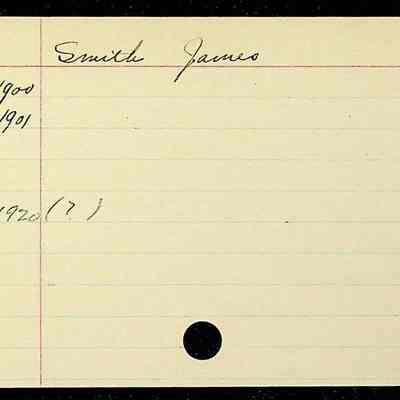 Smith James
1900
1901
1920 (?)